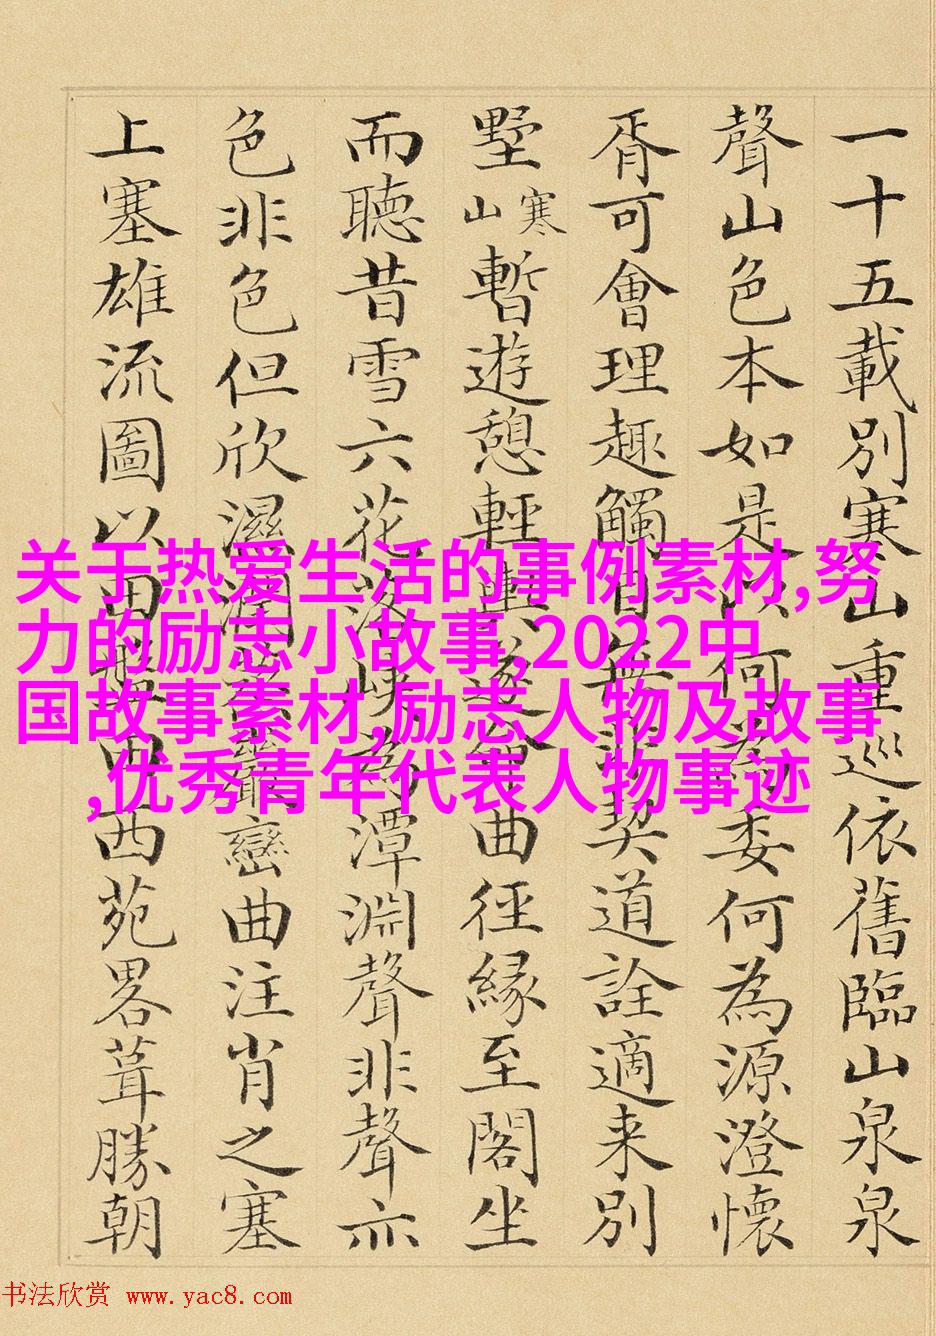 一十五載別寒山重巡依舊臨山泉泉
聲山色本如是以何為委何為源澄懷
胥可會理趣觸目無非契道詮適来別
墅寒山暫遊憩輕輿遂曲徑緣至閣坐
而聽昔雪六花落峽為潭淵聲非聲亦
色非色但欣濕潤巒曲注肖之塞
上塞雄流圖以田盤西苑畧葺勝朝
关于热爱生活的事例素材,努
力的励志小故事,2022中
国故事素材,励志人物及故事
,优秀青年代表人物事迹
书法欣赏 www.yac8.com